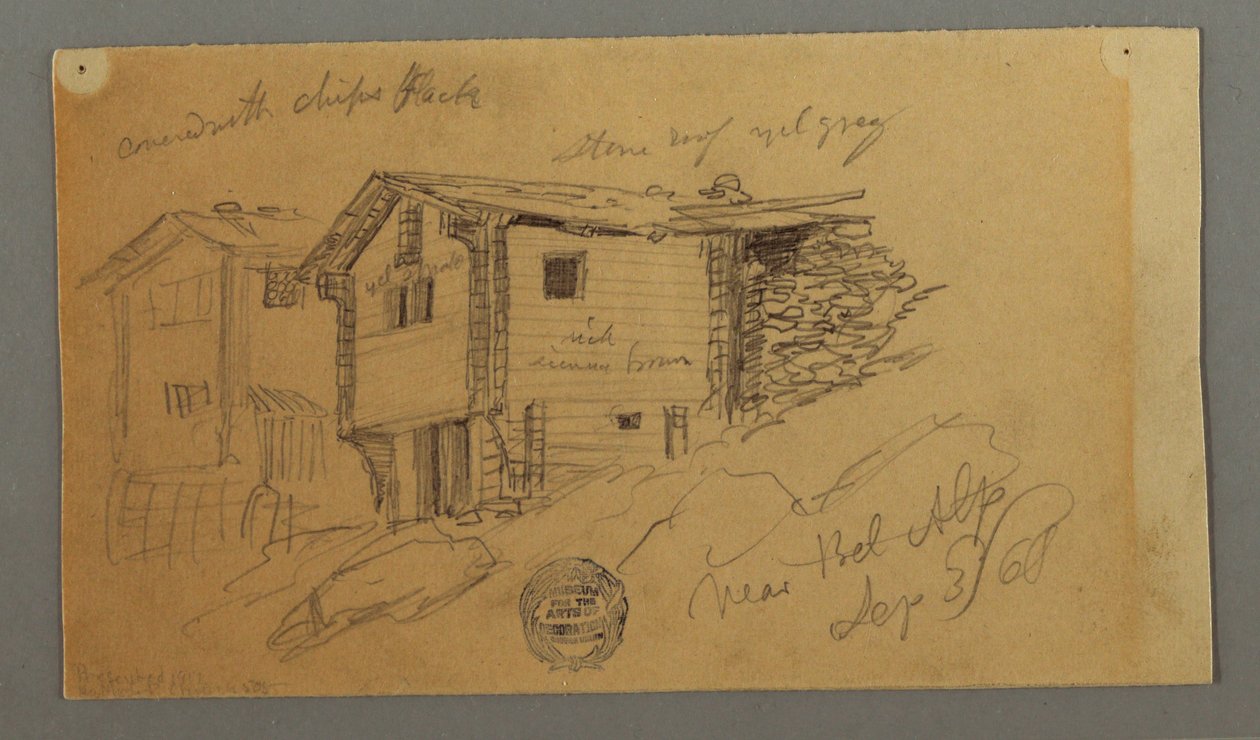 covered with chips black
stone roof yel gray
yel
rich
sienna brown
Near Bel Alp
Sep 3/68
MUSEUM
FOR THE
ARTS OF
DECORATION
COOPER UNION
Presented 1917